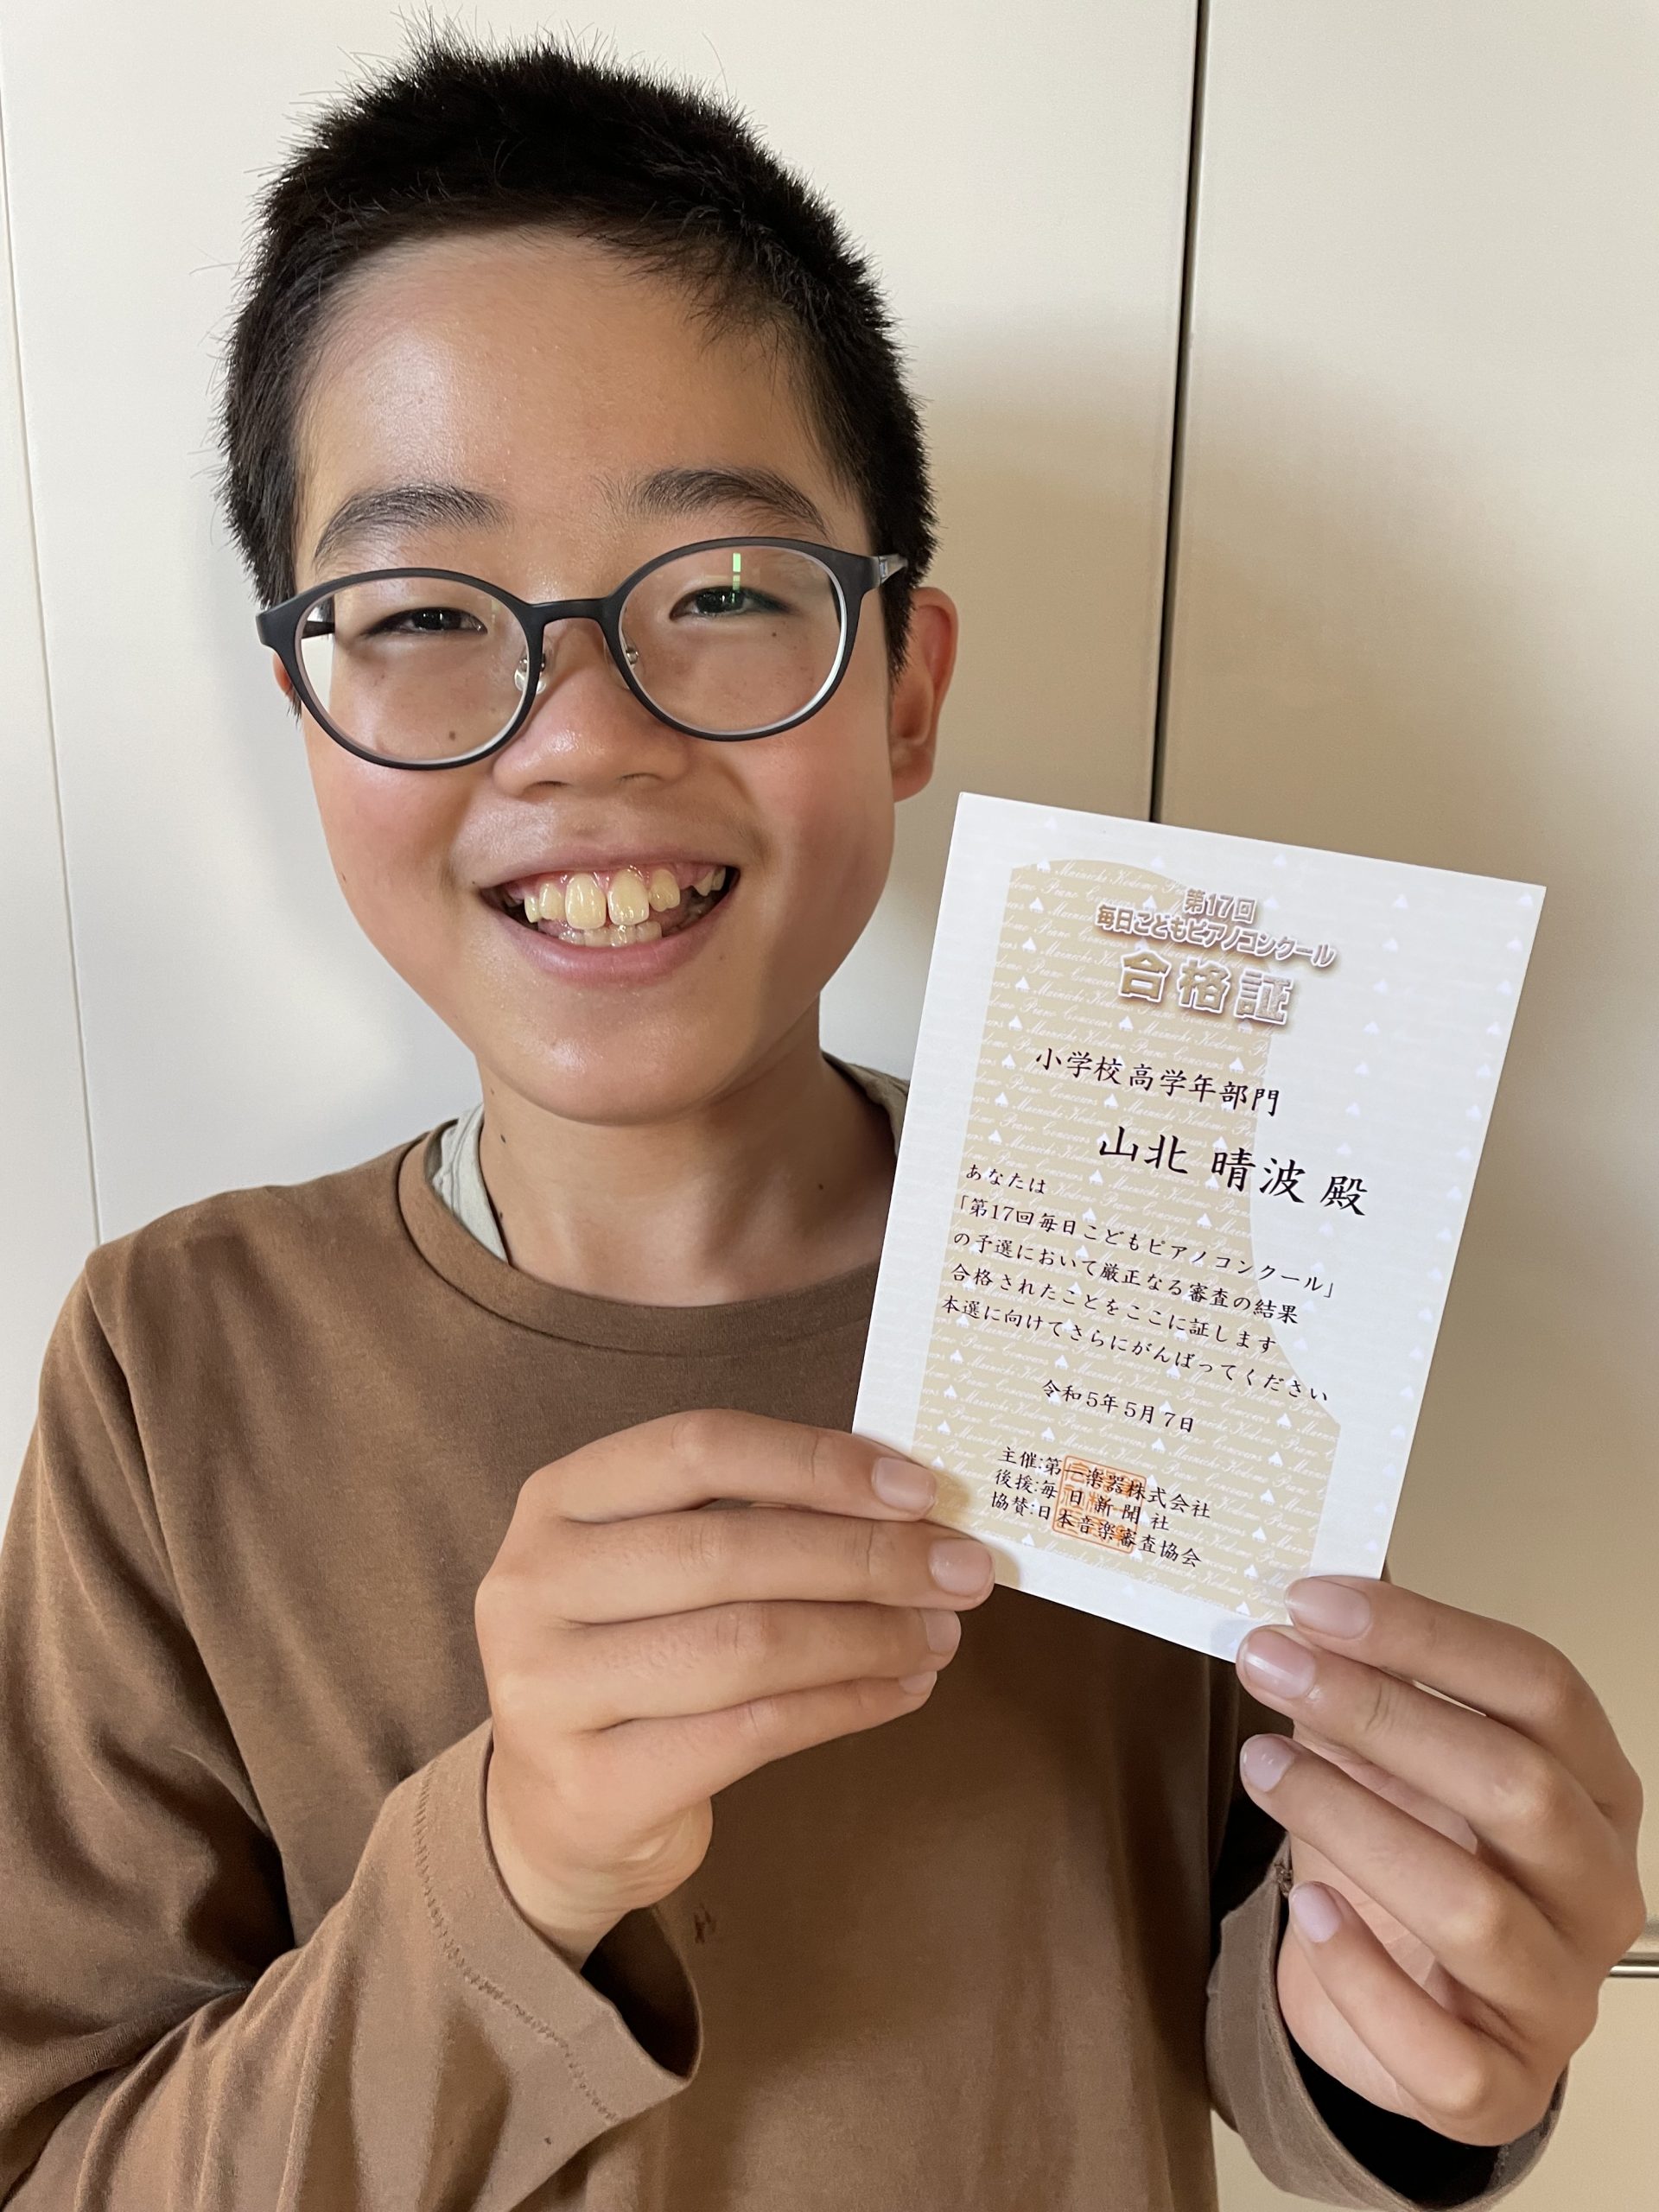 第17回
毎日こどもピアノコンクール
合格証
小学校高学年部門
山北 晴波 殿
あなたは
「第17回毎日こどもピアノコンクール」
の予選において厳正なる審査の結果
合格されたことをここに証します
本選に向けてさらにがんばってください
令和5年5月7日
主催:第一楽器株式会社
後援:毎日新聞社
協賛:日本音楽審査協会